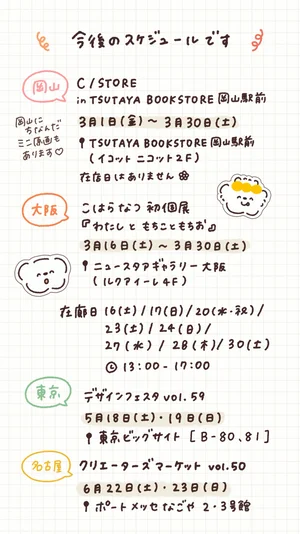 今後のスケジュールです
岡山
C/STORE
in TSUTAYA BOOKSTORE 岡山駅前
3月1日(金)〜3月30日(土)
TSUTAYA BOOKSTORE 岡山駅前
(イコットニコット2F)
在店日はありません
岡山に
ちなんだ
ミニ原画も
あります♡
大阪
こはらなつ 初個展
『わたしともちこともちお』
3月16日(土)〜3月30日(土)
ニュースタアギャラリー大阪
(ルクアイーレ4F)
在廊日 16(土)/17(日)/20(水・祝)/
23(土)/24(日)/
27(水)/28(木)/30(土)
13:00-17:00
東京
デザインフェスタ vol.59
5月18日(土)・19日(日)
東京ビッグサイト [B-80、81]
名古屋
クリエーターズマーケット vol.50
6月22日(土)・23日(日)
ポートメッセなごや 2・3号館